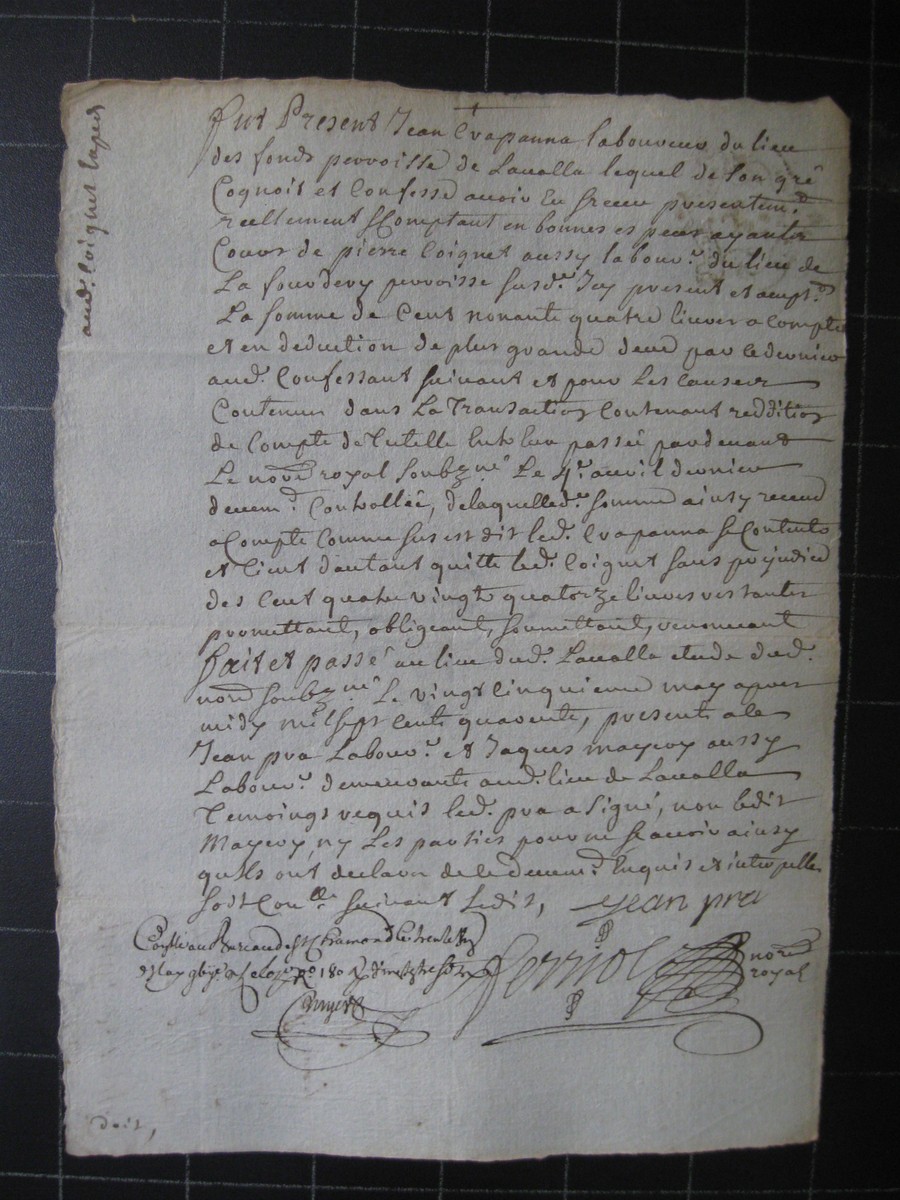 aud. Coignet
fut Present Jean Crapanna laboureur du lieu
des fonds perroisse de Lavalla lequel de son gré
Cognoit et Confesse avoir Eu & receu presentemt.
reellement & Comptant en bonnes especes ayants
Cours de pierre Coignet aussy labourr. du lieu de
La fourdery perroisse susde. Icy present et acceptt.
La somme de Cent nonante quatre livres a Compte
et en deduction de plus grande deue par ce dernier
aud. Confessant suivant et pour Les Causes
Contenues dans La Transaction Contenant reddition
de Compte de Tutelle Entr'Eux passée pardevant
Le nore. royal soubzné. Le 4e. avril dernier
deuemt. Controllée, de laquellede. somme ainsy receue
a Compte Comme sus est dit led. Crapanna se Contente
et tient d'autant quitte led. Coignet sans prejudice
des Cent quatre vingts quatorze livres restantes
promettant, obligeant, soumettant, renonceant
fait et passé au lieu dud. Lavalla etude dud.
nore soubzné. Le vingt Cinquieme may apres
midy mil sept Cents quarente, presents a ce
Jean pra Labourr. et Jaques mayery aussy
Labourr. demeurants aud. lieu de Lavalla
Temoings requis led. pra a signé, non ledit
Mayery, ny Les parties pour ne sçavoir ainsy
qu'ils ont declaré de ce deuemt. Enquis et interpellés
soit Conllé suivant L'edit, Jean pra
Conllé au Bureau de St Chamond le trente
may
ferriol nore royal
doit,